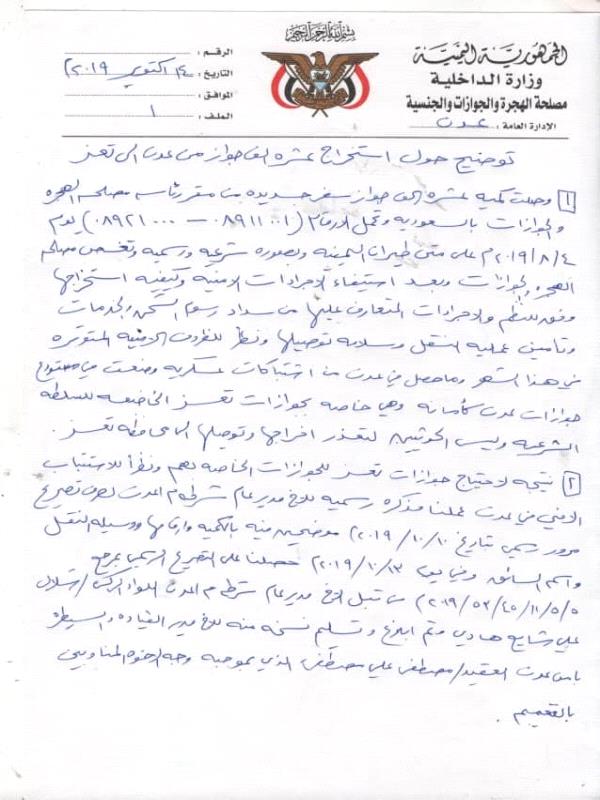 بسم الله الرحمن الرحيم
الجمهورية اليمنية
وزارة الداخلية
مصلحة الهجرة والجوازات والجنسية
الإدارة العامة: عدن
الرقم:
التاريخ: ١٤ اكتوبر ٢٠١٩
الموافق:
الملف: ١
توضيح حول استخراج عشره الف جواز من عدن الى تعز
١] وصلت كميه عشره الف جواز سفر جديده من مقر رئاسه مصلحه الهجره
والجوازات بالسعوديه وتحمل الارقام (٠٨٩١١٠٠١ – ٠٨٩٢١٠٠٠) يوم
٢٠١٩/٨/٤م على متن طيران اليمنيه وبصوره شرعيه ورسميه وتخص مصلحه
الهجره والجوازات وبعد استيفاء الاجراءات الامنيه وكيفيه استخراجها
وفق للنظم والاجراءات المتعارف عليها من سداد رسوم الشحن والخدمات
وتامين عمليه النقل وسلامه توصيلها ونظراً للظروف الامنيه المتوتره
في هذا الشهر وماحصل في عدن من اشتباكات عسكريه وضعت في مستودع
جوازات عدن كأمانه وهي خاصه بجوازات تعز الخاضعه للسلطه
الشرعيه وليس الحوثيين لتعذر اخراجها وتوصيلها الى محافظه تعز.
٢] نتيجه لاحتياج جوازات تعز للجوازات الخاصه بهم ونظراً للاستتباب
الامني في عدن عملنا مذكره رسميه للاخ مدير عام شرطه م/عدن بصرف تصريح
مرور رسمي بتاريخ ٢٠١٩/١٠/١٠ موضحين فيه بالكميه وارقامها ووسيله النقل
واسم السائق وفي يوم ٢٠١٩/١٠/١٣ حصلنا على التصريح الرسمي بمرجع
من قبل الاخ مدير عام شرطه م/عدن اللواء الركن/شلال
علي شايع هادي وتم ابلاغ وتسلم نسخه منه للاخ مدير القياده والسيطره
بامن عدن العقيد/مصطفى علي مصطفى الذي بموجبه وجه الاخوه المناوبين
بالتعميم.